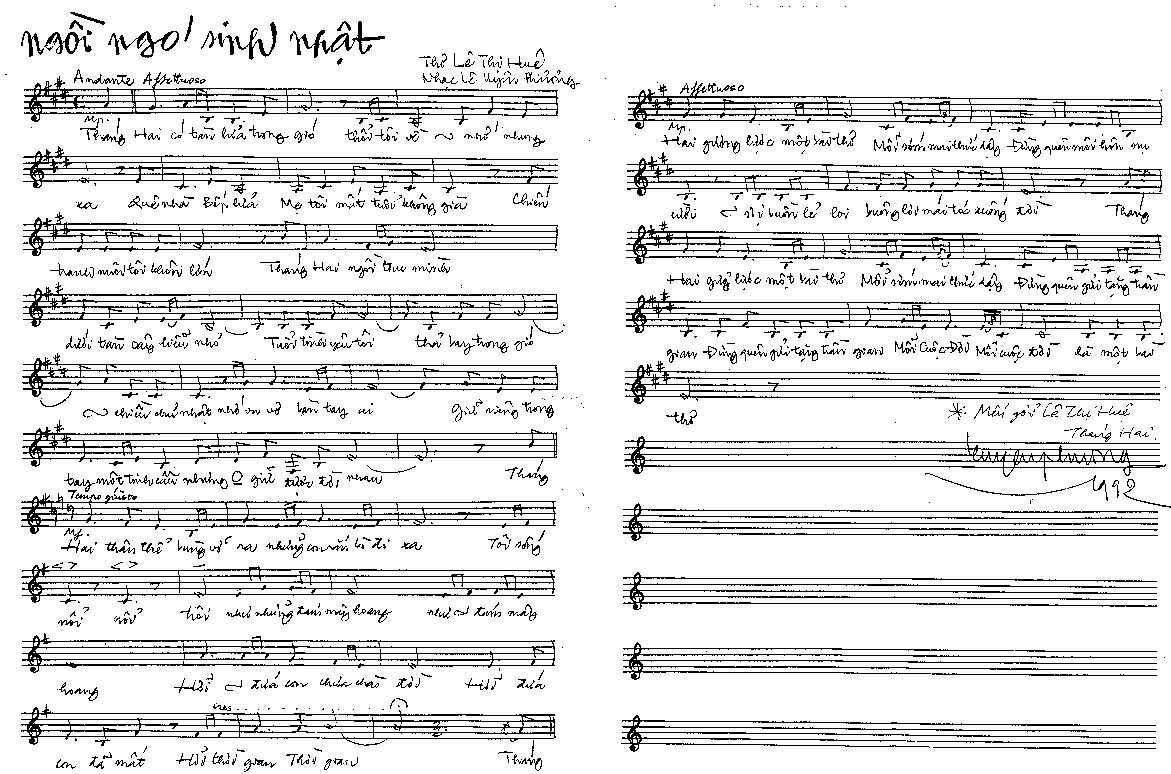 ngồi ngơ sinh nhật
Thơ Lê Thị Huệ
Nhạc Lê Uyên Phương
Andante Affettuoso
mp.
Tháng Hai có tàn lửa trong gió thổi tôi về nhớ nhung
xa Quê nhà Bếp lửa Mẹ tôi mất tiếc không già Chiến
tranh môi tôi khôn lớn Tháng Hai ngồi thu mình
dưới tàn cây liễu nhỏ Tuổi tình yêu tôi thả bay trong gió
chiều chủ nhật nhớ ơn vỗ bàn tay ai Giữ riêng trong
tay một tình cầu nhưng giữ được đời nhau Tháng
Tempo giusto
mf.
Hai thân thể bùng vỡ ra những con rắn bò đi xa Tôi sống
nổi nổi trôi như những đám mây hoang như đám mây
hoang Hỡi đứa con chưa chào đời Hỡi đứa
cres
con đã mất Hỡi thời gian Thời gian Tháng
Affettuoso
mp.
Hai gương lược một bài thơ Mỗi sớm mai thức dậy Đừng quên môi hôn nụ
cười buồn lẻ loi buông lơi mái tóc xuống đời Tháng
Hai giữ lược một bài thơ Mỗi sớm mai thức dậy Đừng quên gửi tặng trần
gian Đừng quên gửi tặng trần gian Mỗi cuộc Đời Mỗi cuộc đời là một bài
thơ
* Mến gởi Lê Thị Huệ
Tháng Hai.
1992